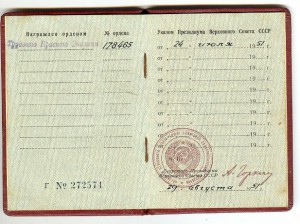 Награжден орденом
№ ордена
Трудового Красного Знамени
178465
Г № 272571
Указом Президиума Верховного Совета СССР
от 24 июля 1951 г.
от 19 г.
от 19 г.
от 19 г.
от 19 г.
от 19 г.
от 19 г.
от 19 г.
Секретарь Президиума
Верховного Совета СССР
29 августа 51 г.